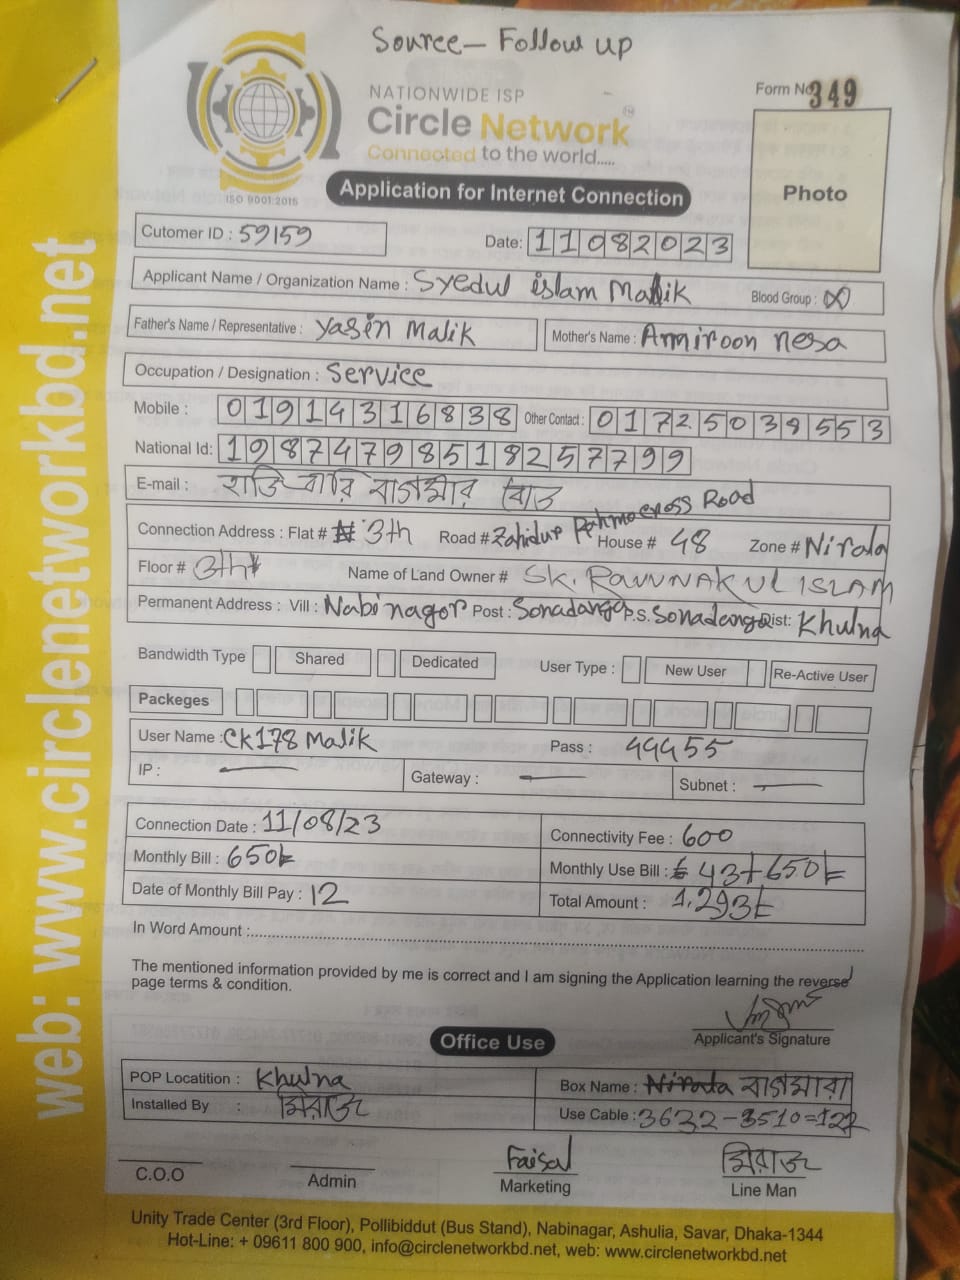 Source - Follow up
NATIONWIDE ISP
Circle Network
Connected to the world.....
ISO 9001:2015
Form No 349
Application for Internet Connection
Photo
Cutomer ID : 59159
Date: 11082023
Applicant Name / Organization Name : Syedul islam Malik Blood Group :
Father's Name / Representative : Yasin Malik Mother's Name : Amiroon nesa
Occupation / Designation : Service
Mobile : 01914316838 Other Contact : 01725038553
National Id: 19874798518257799
E-mail :
Connection Address : Flat # 3th Road # Zahidur Rahma cross Road House # 48 Zone # Nirala
Floor # 3th Name of Land Owner # SK. RAVNNAKUL ISLAM
Permanent Address : Vill : Nabinagor Post : Sonadanga P.S. Sonadanga Dist: Khulna
Bandwidth Type Shared Dedicated User Type : New User Re-Active User
Packeges
User Name : CK178 Malik Pass : 44455
IP : — Gateway : — Subnet : —
Connection Date : 11/08/23 Connectivity Fee : 600
Monthly Bill : 650/- Monthly Use Bill : 43+650/-
Date of Monthly Bill Pay : 12 Total Amount : 1,293/-
In Word Amount :
The mentioned information provided by me is correct and I am signing the Application learning the reverse
page terms & condition.
Applicant's Signature
Office Use
POP Locatition : Khulna Box Name : Nirala বাগমারা
Installed By : মিরাজ Use Cable : 3632-3510=122
C.O.O Admin Faisal Marketing মিরাজ Line Man
Unity Trade Center (3rd Floor), Pollibiddut (Bus Stand), Nabinagar, Ashulia, Savar, Dhaka-1344
Hot-Line: + 09611 800 900, info@circlenetworkbd.net, web: www.circlenetworkbd.net
web: www.circlenetworkbd.net